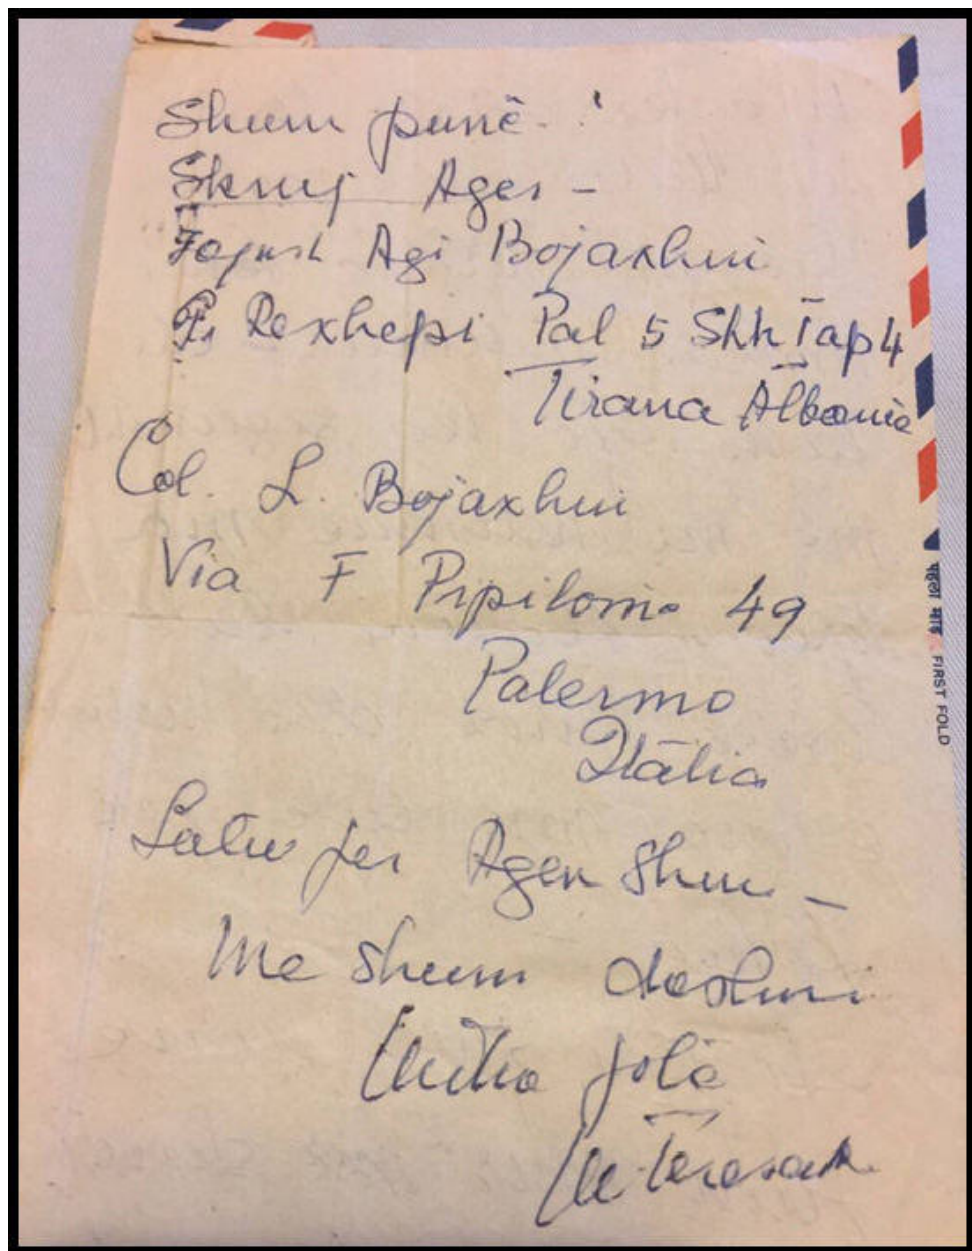 Shum punë - !
Skruj Ages -
Agi Bojaxhui
Rexhepi Pal 5 Shh Tap 4
Tirana Albania
Col. L. Bojaxhui
Via F Pipilomo 49
Palermo
Itália
Latu per Agen Shum -
Me shum dashuri
jotë
M Teresa
पहला मोड़ FIRST FOLD